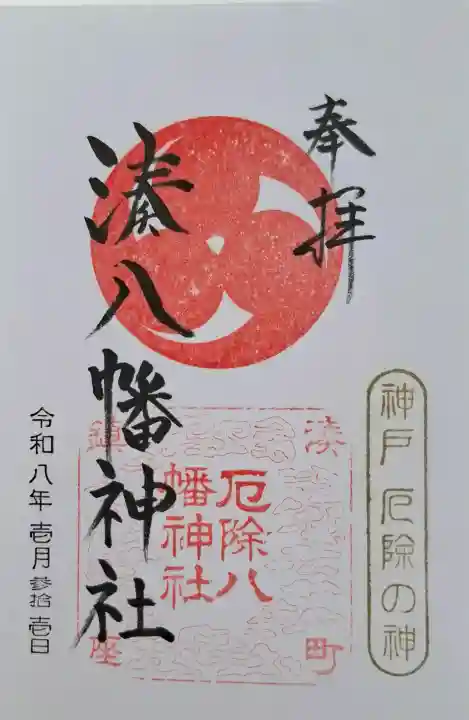 奉拝
神戸 厄除の神
湊八幡神社
湊町鎮座
厄除八幡神社
令和八年 壱月 参拾壱日